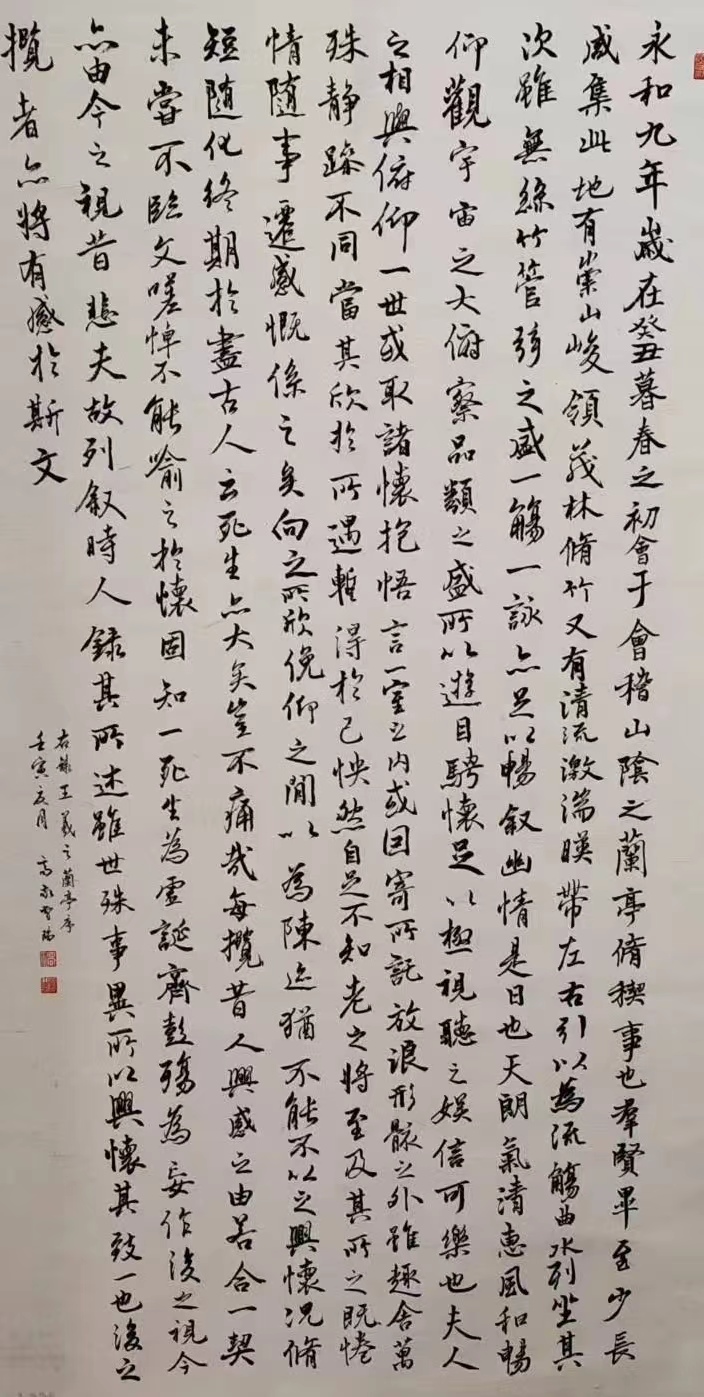 永和九年歲在癸丑暮春之初會于會稽山陰之蘭亭脩稧事也羣賢畢至少長
咸集此地有崇山峻領茂林脩竹又有清流激湍暎帶左右引以為流觴曲水列坐其
次雖無絲竹管弦之盛一觴一詠亦足以暢叙幽情是日也天朗氣清惠風和暢
仰觀宇宙之大俯察品類之盛所以遊目騁懷足以極視聽之娛信可樂也夫人
之相與俯仰一世或取諸懷抱悟言一室之內或因寄所託放浪形骸之外雖趣舍萬
殊靜躁不同當其欣於所遇暫得於己怏然自足不知老之將至及其所之既惓
情隨事遷感慨係之矣向之所欣俛仰之閒以為陳迹猶不能不以之興懷況脩
短隨化終期於盡古人云死生亦大矣豈不痛哉每攬昔人興感之由若合一契
未嘗不臨文嗟悼不能喻之於懷固知一死生為虛誕齊彭殤為妄作後之視今
亦由今之視昔悲夫故列叙時人錄其所述雖世殊事異所以興懷其致一也後之
攬者亦將有感於斯文
右錄王羲之蘭亭序
壬寅夏月